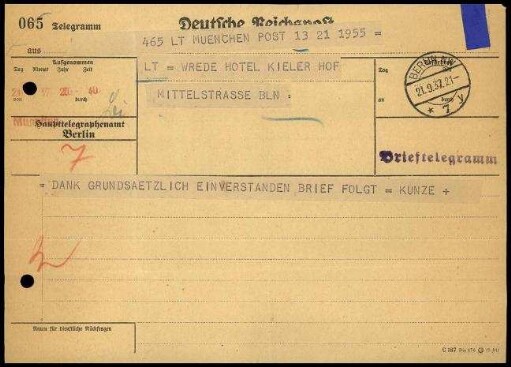 065 Telegramm
Deutsche Reichspost
465 LT MUENCHEN POST 13 21 1955 =
aus
Aufgenommen
Tag Monat Jahr Zeit
durch
LT = WREDE HOTEL KIELER HOF
MITTELSTRASSE BLN =
BERLIN
21.9.37.21-
* 7 y
Haupttelegraphenamt
Berlin
7
Brieftelegramm
= DANK GRUNDSAETZLICH EINVERSTANDEN BRIEF FOLGT = KUNZE +
Raum für dienstliche Rückfragen
C 187